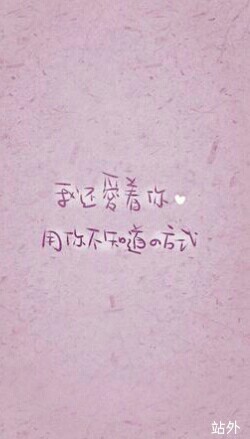 我还愛着你
用你不知道の方式
站外